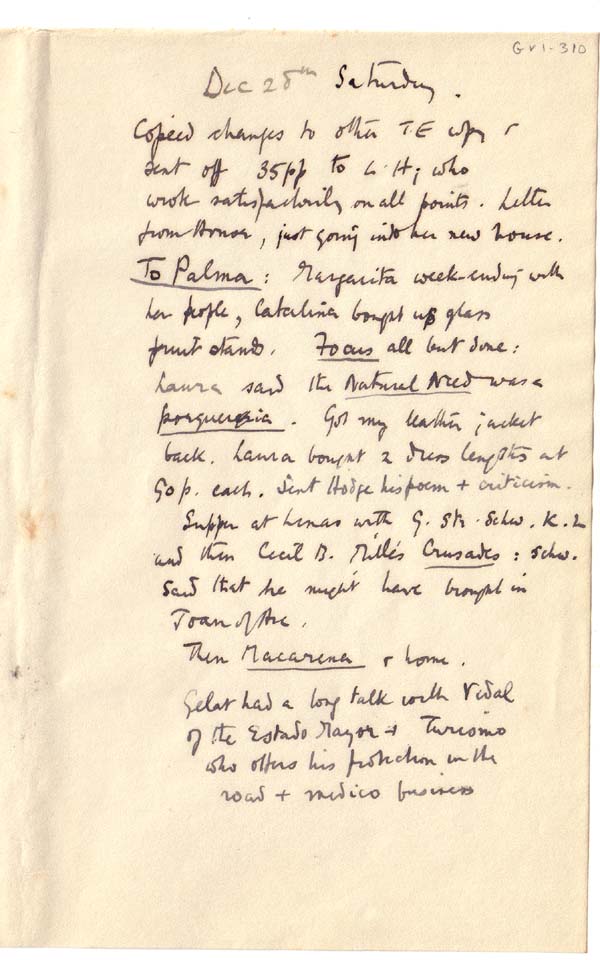 G v 1-310
Dec 28th Saturday.
Copied changes to other T.E copy &
sent off 35pp to L.H; who
wrote satisfactorily on all points. Letter
from Honor, just going into her new house.
To Palma: Margarita week-ending with
her people, Catalina bought us glass
fruit stands. Focus all but done:
Laura said the Natural Need was a
porqueria. Got my leather jacket
back. Laura bought 2 dress lengths at
90 p. each. Sent Hodge his poem + criticism.
Supper at Lenas with G. Str. Schw. K. L
and then Cecil B. Mille's Crusades: Schw.
said that he might have brought in
Joan of Arc.
Then Macarena & home.
Gelat had a long talk with Vidal
of the Estado Mayor + Turismo
who offers his protection in the
road + medico business